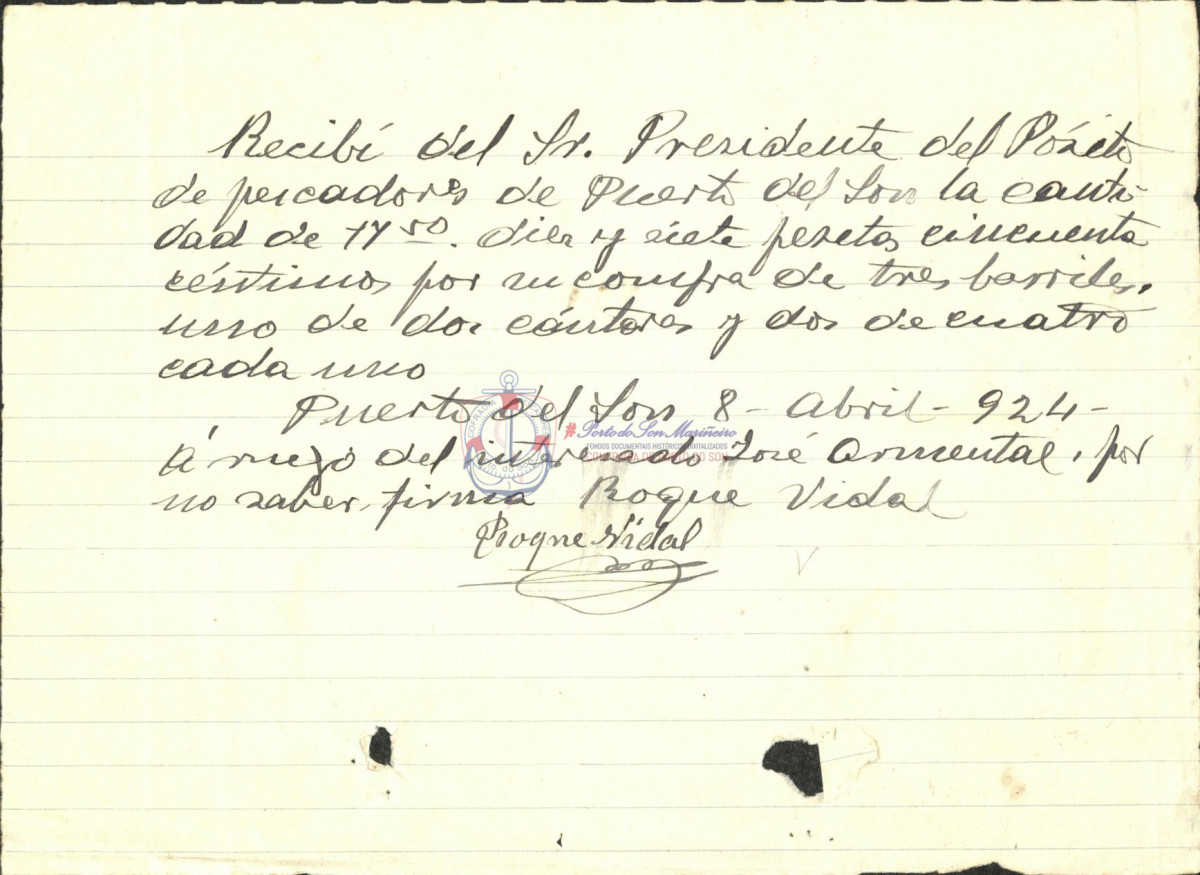 Recibí del Sr. Presidente del Pósito
de pescadores de Puerto del Son la canti-
dad de 17 50. diez y siete pesetas cincuenta
céntimos por su compra de tres barriles,
uno de dos cántaros y dos de cuatro
cada uno
Puerto del Son 8 - Abril - 924 -
Á ruego del interesado José Ormental, por
no saber, firma Roque Vidal
Roque Vidal
#Porto do Son Mariñeiro
FONDOS DOCUMENTAIS HISTÓRICOS DIGITALIZADOS